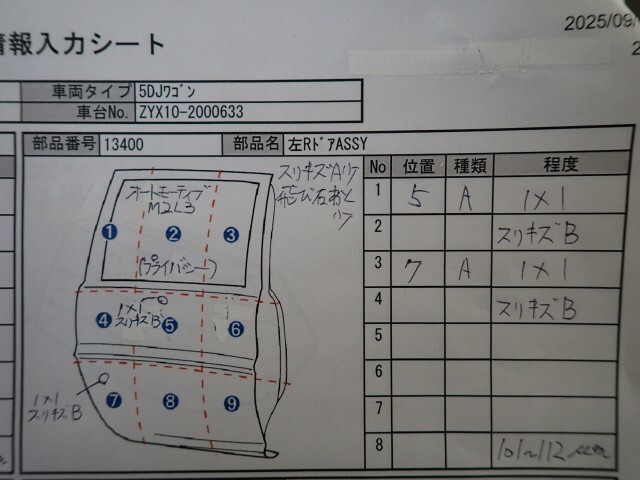 2025/09/
情報入力シート
2
車両タイプ 5DJワゴン
車台No. ZYX10-2000633
部品番号 13400 部品名 左RドアASSY
No 位置 種類 程度
1 5 A 1×1
2 スリキズB
3 7 A 1×1
4 スリキズB
5
6
7
8 101~112
スリキズA
飛び石
オートモーティブ
M2L3
(プライバシー)
1 2 3
1×1
スリキズB
4 5 6
1×1
スリキズB
7 8 9